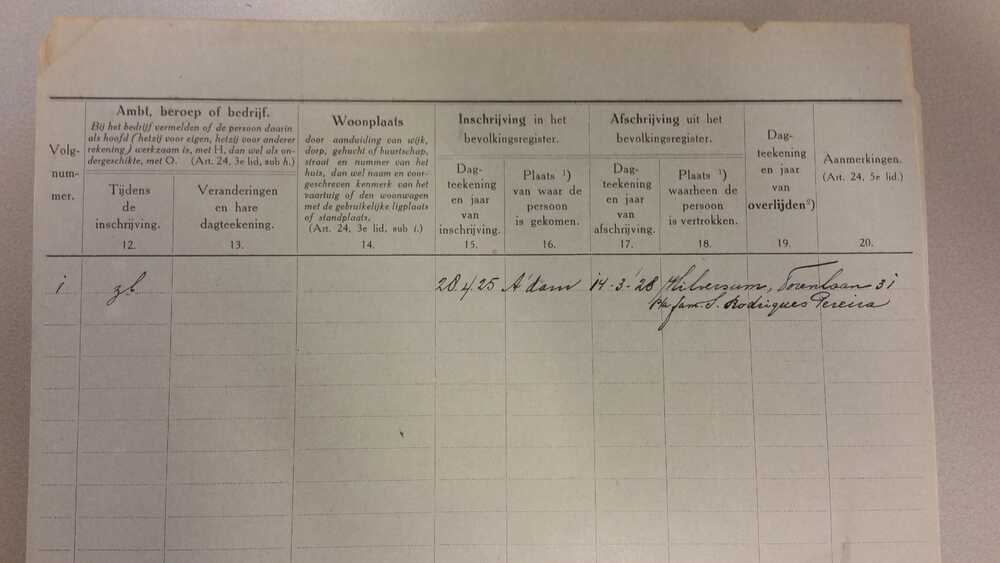 Volg-
num-
mer.
Ambt, beroep of bedrijf.
Bij het bedrijf vermelden of de persoon daarin
als hoofd (hetzij voor eigen, hetzij voor anderer
rekening) werkzaam is, met H, dan wel als on-
dergeschikte, met O. (Art. 24, 3e lid, sub h.)
Tijdens
de
inschrijving.
12.
Veranderingen
en hare
dagteekening.
13.
Woonplaats
door aanduiding van wijk,
dorp, gehucht of buurtschap,
straat en nummer van het
huis, dan wel naam en voor-
geschreven kenmerk van het
vaartuig of den woonwagen
met de gebruikelijke ligplaats
of standplaats.
(Art. 24, 3e lid, sub i.)
14.
Inschrijving in het
bevolkingsregister.
Dag-
teekening
en jaar
van
inschrijving.
15.
Plaats ¹)
van waar de
persoon
is gekomen.
16.
Afschrijving uit het
bevolkingsregister.
Dag-
teekening
en jaar
van
afschrijving.
17.
Plaats ¹)
waarheen de
persoon
is vertrokken.
18.
Dag-
teekening
en jaar
van
overlijden²)
19.
Aanmerkingen.
(Art. 24, 5e lid.)
20.
1 zb 28 4 25 A'dam 14-3-'28 Hilversum, Torenlaan 31
p/a fam. S. Rodrigues Pereira